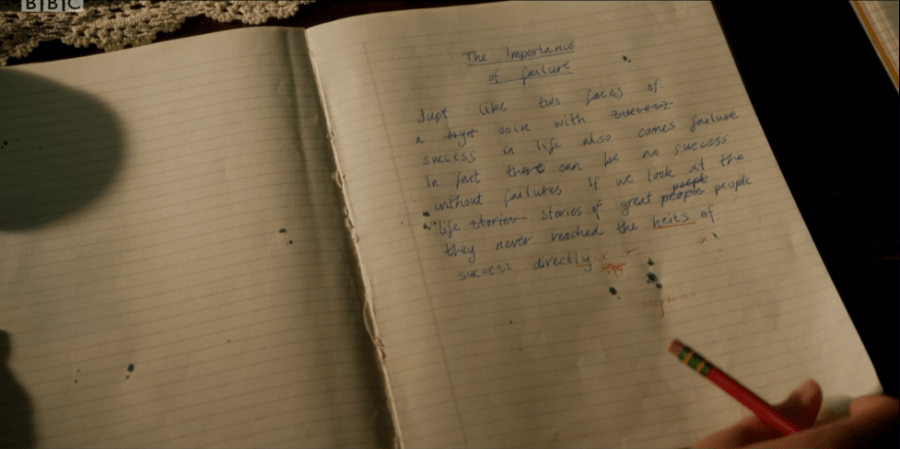 BBC
The Importance
of failure
Just like two faces of
a coin with
success in life also comes failure
In fact there can be no success
without failures. If we look at the
life stories stories of great people people people
they never reached the heits of
success directly